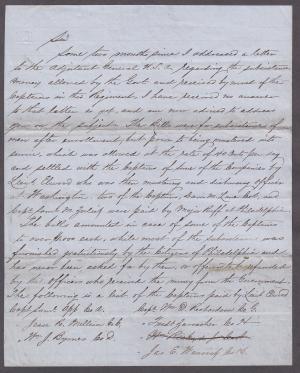 Sir
Some two months since I addressed a letter
to the Adjutant General U.S.A. regarding the subsistence
money allowed by the Govt and received by most of the
Captains in this Regiment, I have received no answer
to that letter as yet, and am now advised to address
you on the subject. The bills were for subsistence of
men after enrollment, but prior to being mustered into
service, which was allowed at the rate of cts per day
and settled with the Captains of some of the Companies by
Lieut Elwood who was then mustering and disbursing Officer
at Washington two of the Captains,
and Capt were paid by Major Ruff at Philadelphia.
The bills amounted in case of some of the Captains
to over cash, while most of the subsistence was
furnished gratuitously by the citizens of Philadelphia and
has never been asked for by them, or refunded
by the Officers who received the money from the Government.
The following is a list of the Captains paid by Lieut Elwood
Capt Saml Opp Co A. Capt Wm D. Richardson Co G.
Jesse R. Co C. Co H
Wm J. Byrnes Co D
Jas E. Co K